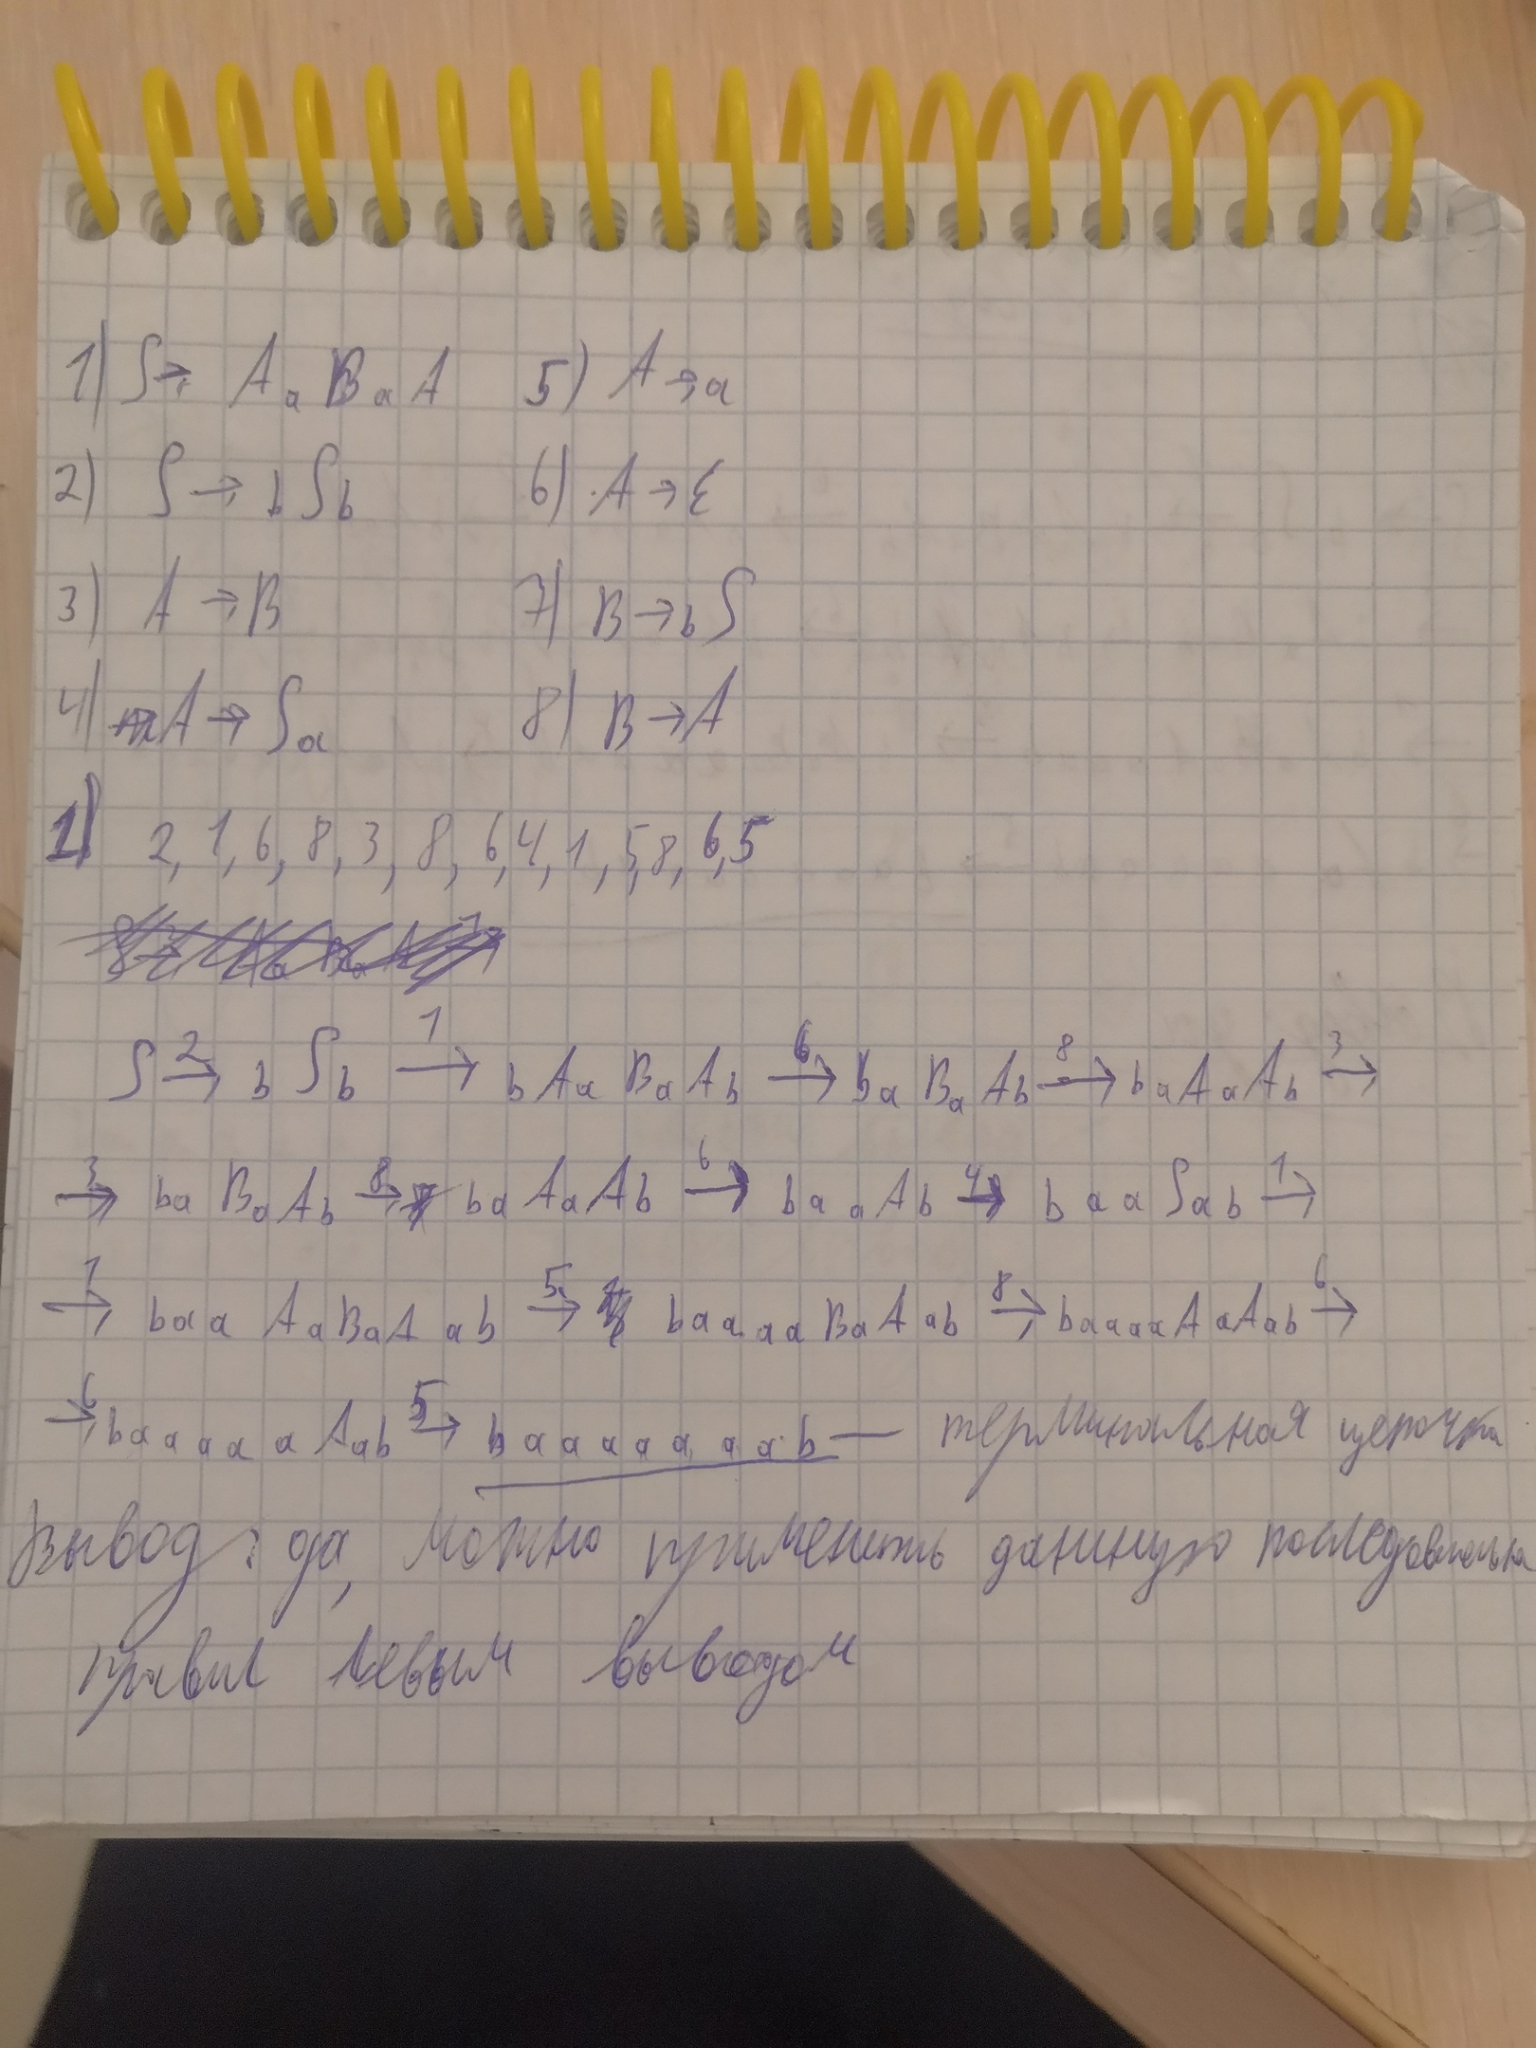 1) S→ AaBaA 5) A→a
2) S→bSb 6) A→ε
3) A→B 7) B→bS
4) A→Sa 8) B→A
1) 2, 1, 6, 8, 3, 8, 6, 4, 1, 5, 8, 6, 5
S 2→ bSb 1→ bAaBaAb 6→ baBaAb 8→ baAaAb 3→
3→ baBaAb 8→ baAaAb 6→ baaAb 4→ baaSab 1→
1→ baaAaBaAab 5→ baaaaBaAab 8→ baaaaAaAab 6→
6→ baaaaaAab 5→ baaaaaaab — терминальная цепочка
Вывод: да, можно применить данную
правил левым выводом